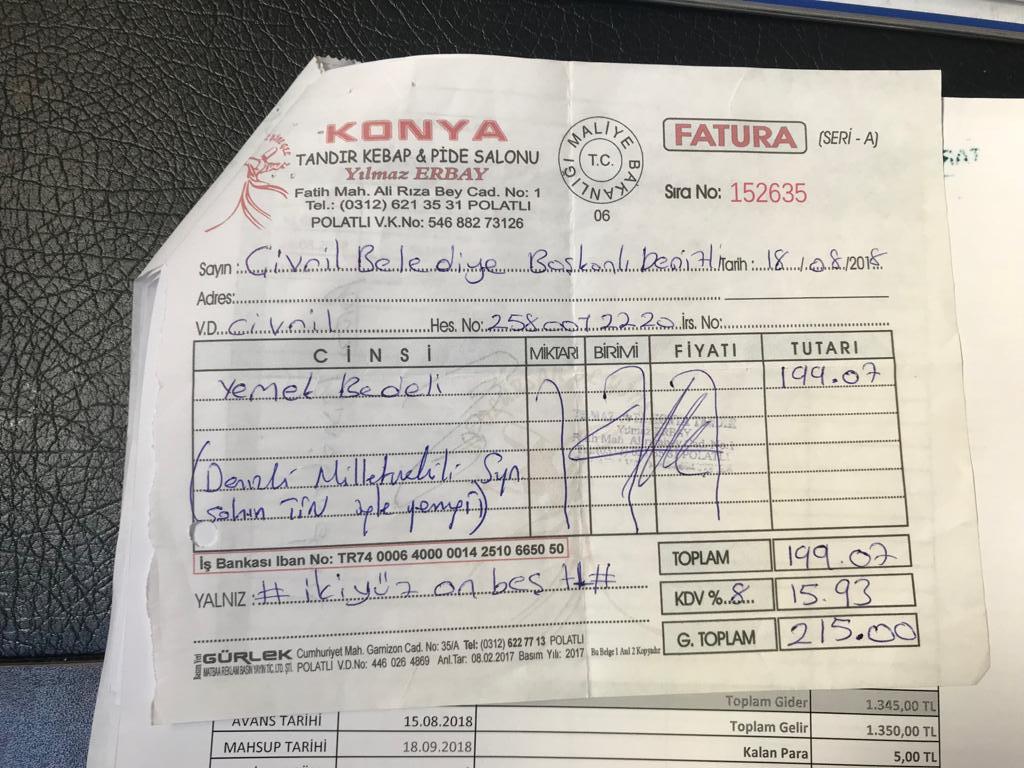 KONYA
TANDIR KEBAP & PİDE SALONU
Yılmaz ERBAY
Fatih Mah. Ali Rıza Bey Cad. No: 1
Tel.: (0312) 621 35 31 POLATLI
POLATLI V.K.No: 546 882 73126
T.C. MALİYE BAKANLIĞI
06
FATURA (SERİ - A)
Sıra No: 152635
Sayın: Çivril Belediye Başkanlı Denizli Tarih: 18/08/2018
Adres:
V.D. Çivril Hes. No: 2580072220 İrs. No:
CİNSİ MİKTARI BİRİMİ FİYATI TUTARI
Yemek Bedeli 199.07
(Denizli Milletvekili Syn
Şahin TİN öğle yemeği)
İş Bankası Iban No: TR74 0006 4000 0014 2510 6650 50
TOPLAM 199.07
YALNIZ: # ikiyüz on beş tl #
KDV % 8 15.93
G. TOPLAM 215.00
GÜRLEK Cumhuriyet Mah. Garnizon Cad. No: 35/A Tel: (0312) 622 77 13 POLATLI
MATBAA REKLAM BASIN YAYIN TİC. LTD. ŞTİ. POLATLI V.D.No: 446 026 4869 Anl.Tar: 08.02.2017 Basım Yılı: 2017 Bu Belge 1 Asıl 2 Kopyadır
Toplam Gider 1.345,00 TL
AVANS TARİHİ 15.08.2018 Toplam Gelir 1.350,00 TL
MAHSUP TARİHİ 18.09.2018 Kalan Para 5,00 TL